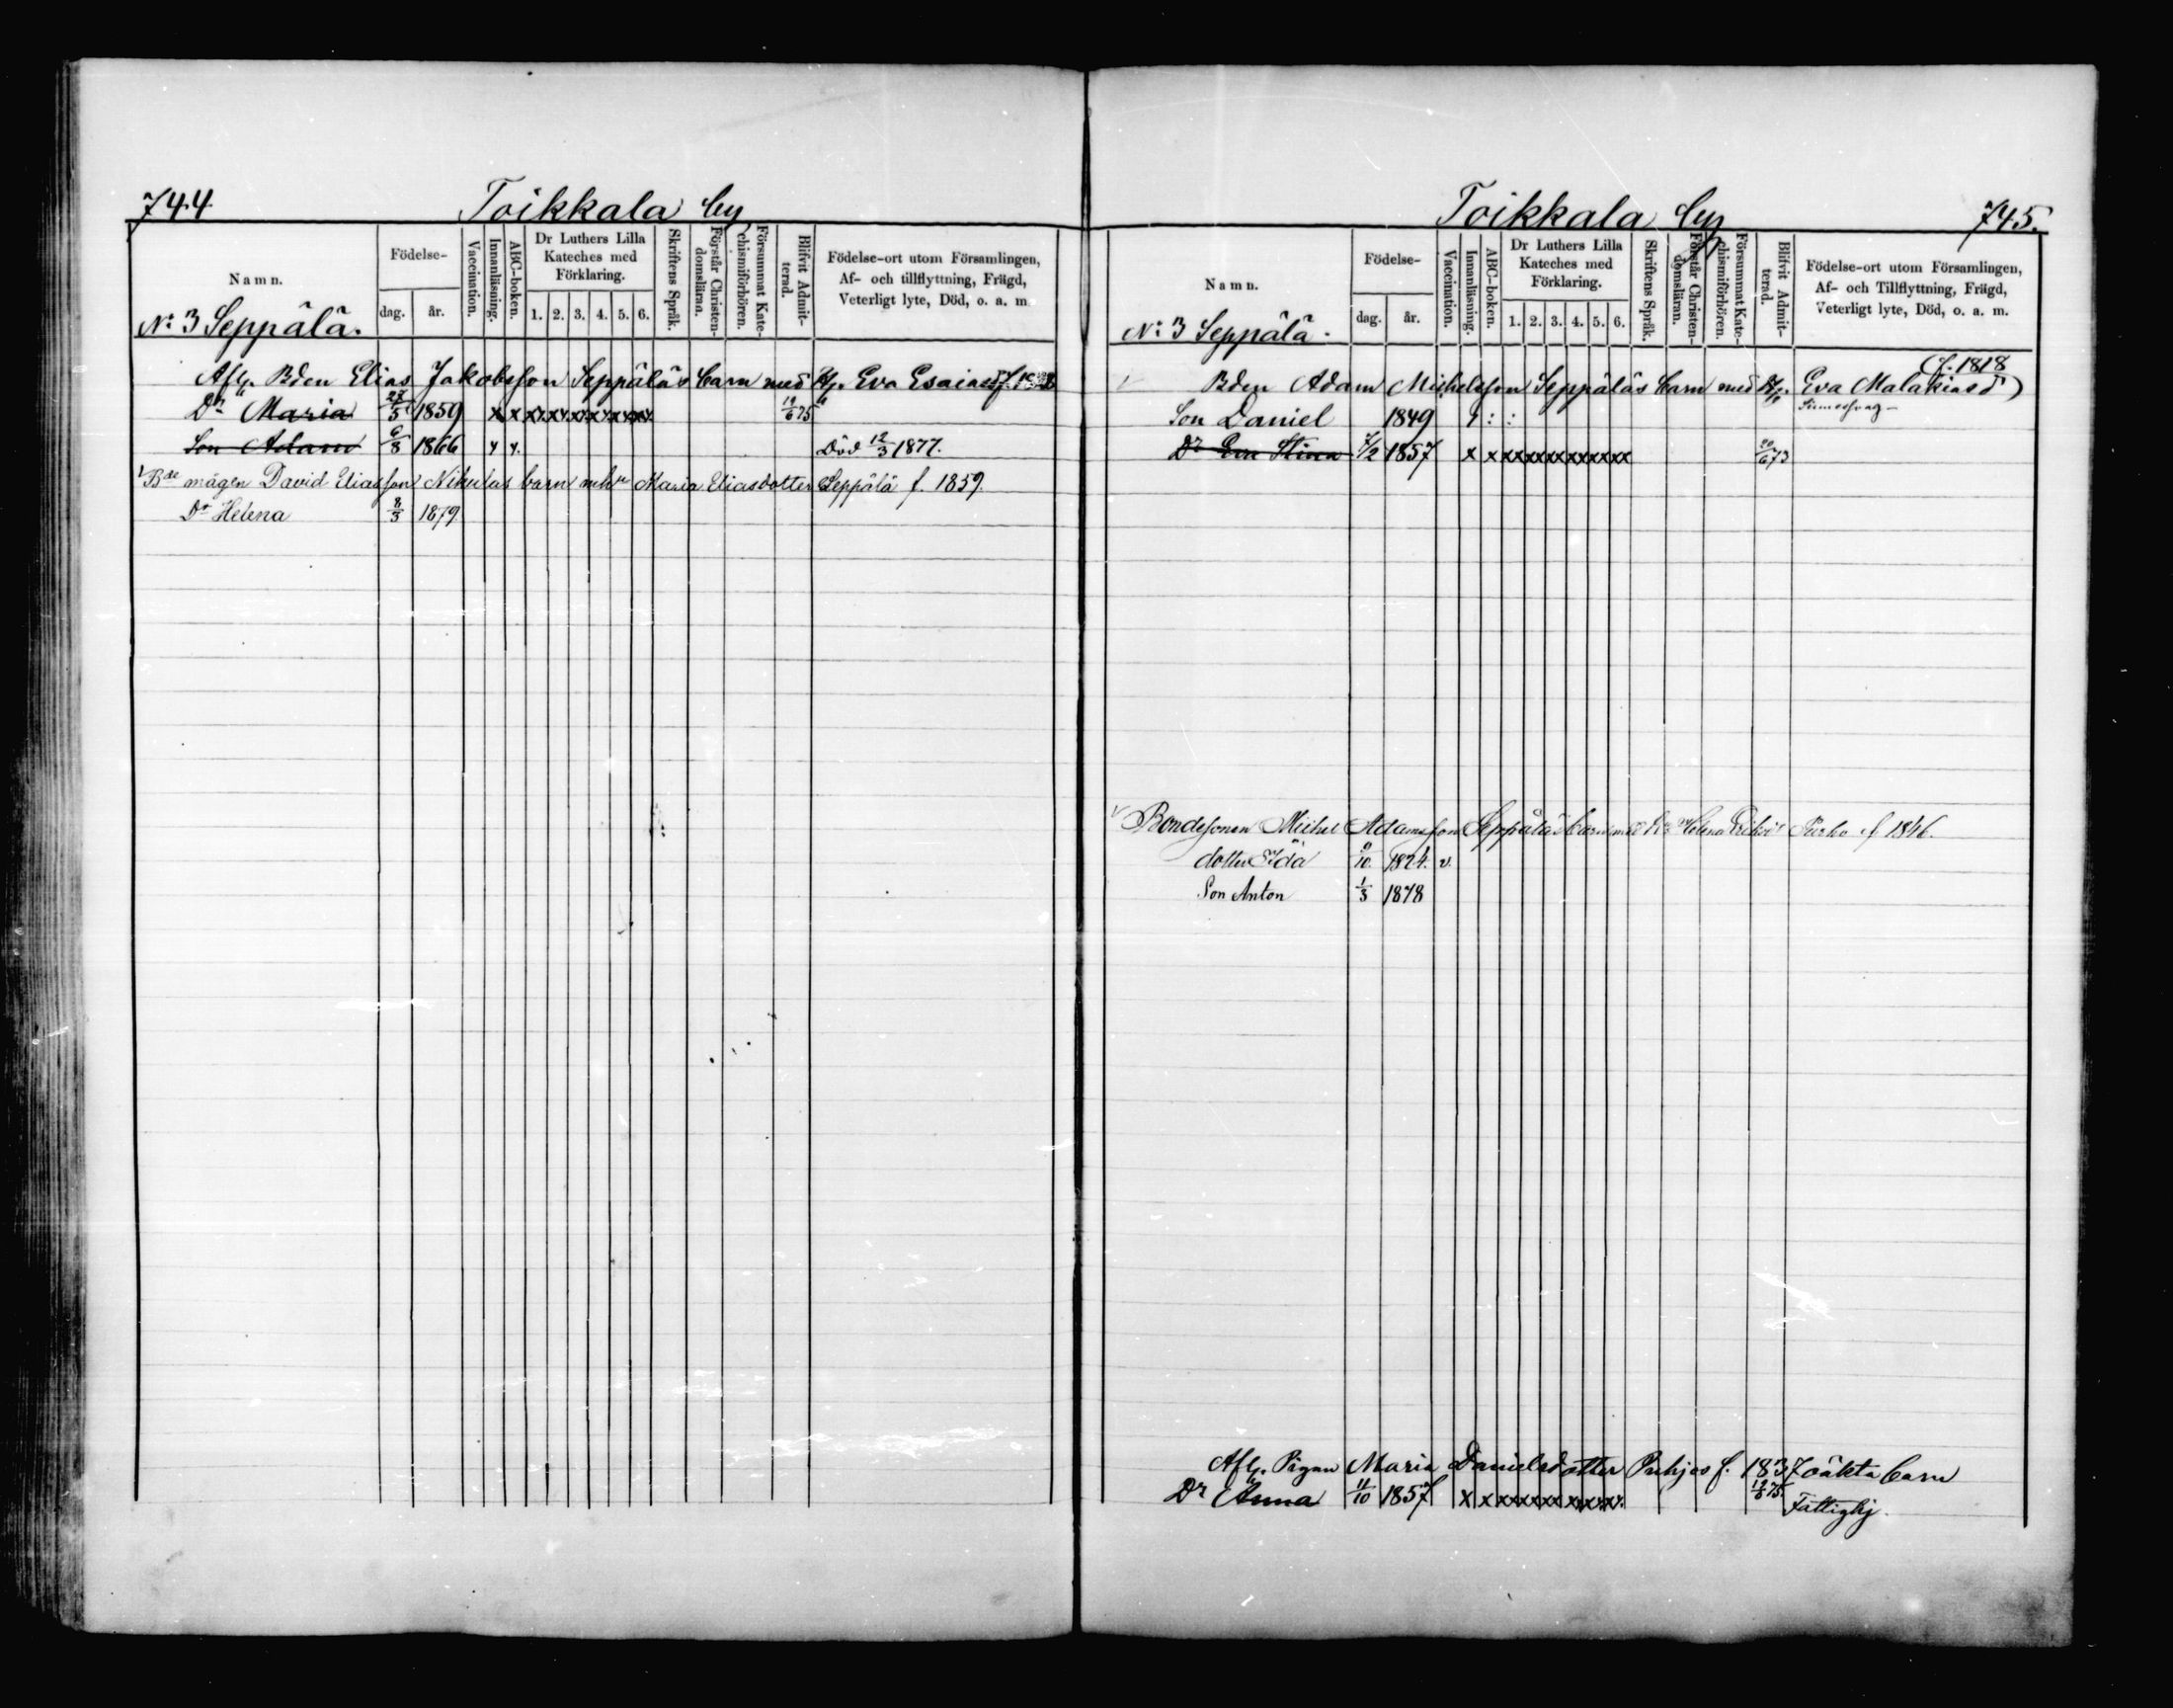 744
Toikkala by
Namn.
Födelse-
dag.
år.
Vaccination.
Innanläsning.
ABC-boken.
Dr Luthers Lilla Kateches med Förklaring.
1. 2. 3. 4. 5. 6.
Skriftens Språk.
Förstår Christen-domsläran.
Försummat Kate-chismiförhören.
Blifvit Admit-terad.
Födelse-ort utom Församlingen,
Af- och tillflyttning, Frägd,
Veterligt lyte, Död, o. a. m.
No 3 Seppälä.
Afl. Bden Elias Jakobsson Seppäläs barn med Hu. Eva Esaiasd
Dr Maria 28/5 1859 x x xxxxxxxxxx 19/6 75
Son Adam 6/8 1866 Död 12/3 1877.
Bde mågen David Eliasson Nikulas barn m hu Maria Eliasdotter Seppälä f. 1859.
Dr Helena 8/3 1879.
Toikkala by
745.
Namn.
Födelse-
dag.
år.
Vaccination.
Innanläsning.
ABC-boken.
Dr Luthers Lilla
Kateches med
Förklaring.
1. 2. 3. 4. 5. 6.
Skriftens Språk.
Förstår Christen-domsläran.
Försummat Kate-chismiförhören.
Blifvit Admit-terad.
Födelse-ort utom Församlingen,
Af- och Tillflyttning, Frägd,
Veterligt lyte, Död, o. a. m.
No 3 Seppälä.
f. 1818
Bden Adam Michelsson Seppäläs barn med Hu. Eva Malakiasd
Son Daniel 1849
Dr Eva Stina 7/2 1857 x x xxxxxxxxxxx 20/6 73
Bondesonen Michel Adamsson Seppäläs barn med Hu Helena Eriksdr Turko f 1846.
dotter Ida 1874. v.
Son Anton 1/3 1878
Afl. Pigan Maria Danielsdotter Puhjos f. 1837 oäkta barn
Dr Anna 11/10 1857 x x xxxxxx xxxxx. 19/6 75.
Fattighj.